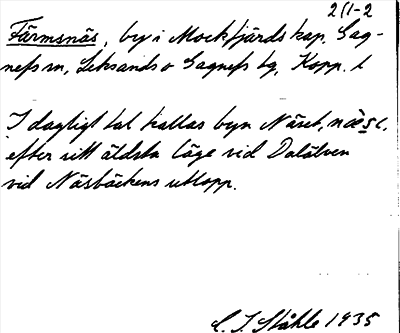 2/1-2
Färmsnäs, by i Mockfjärds kap. Gag-
nefs sn, Leksands o Gagnefs tg, Kopp. l
I dagligt tal kallas byn Näset,
efter sitt äldsta läge vid Dalälven
vid Näsbäckens utlopp.
C. I. Ståhle 1935